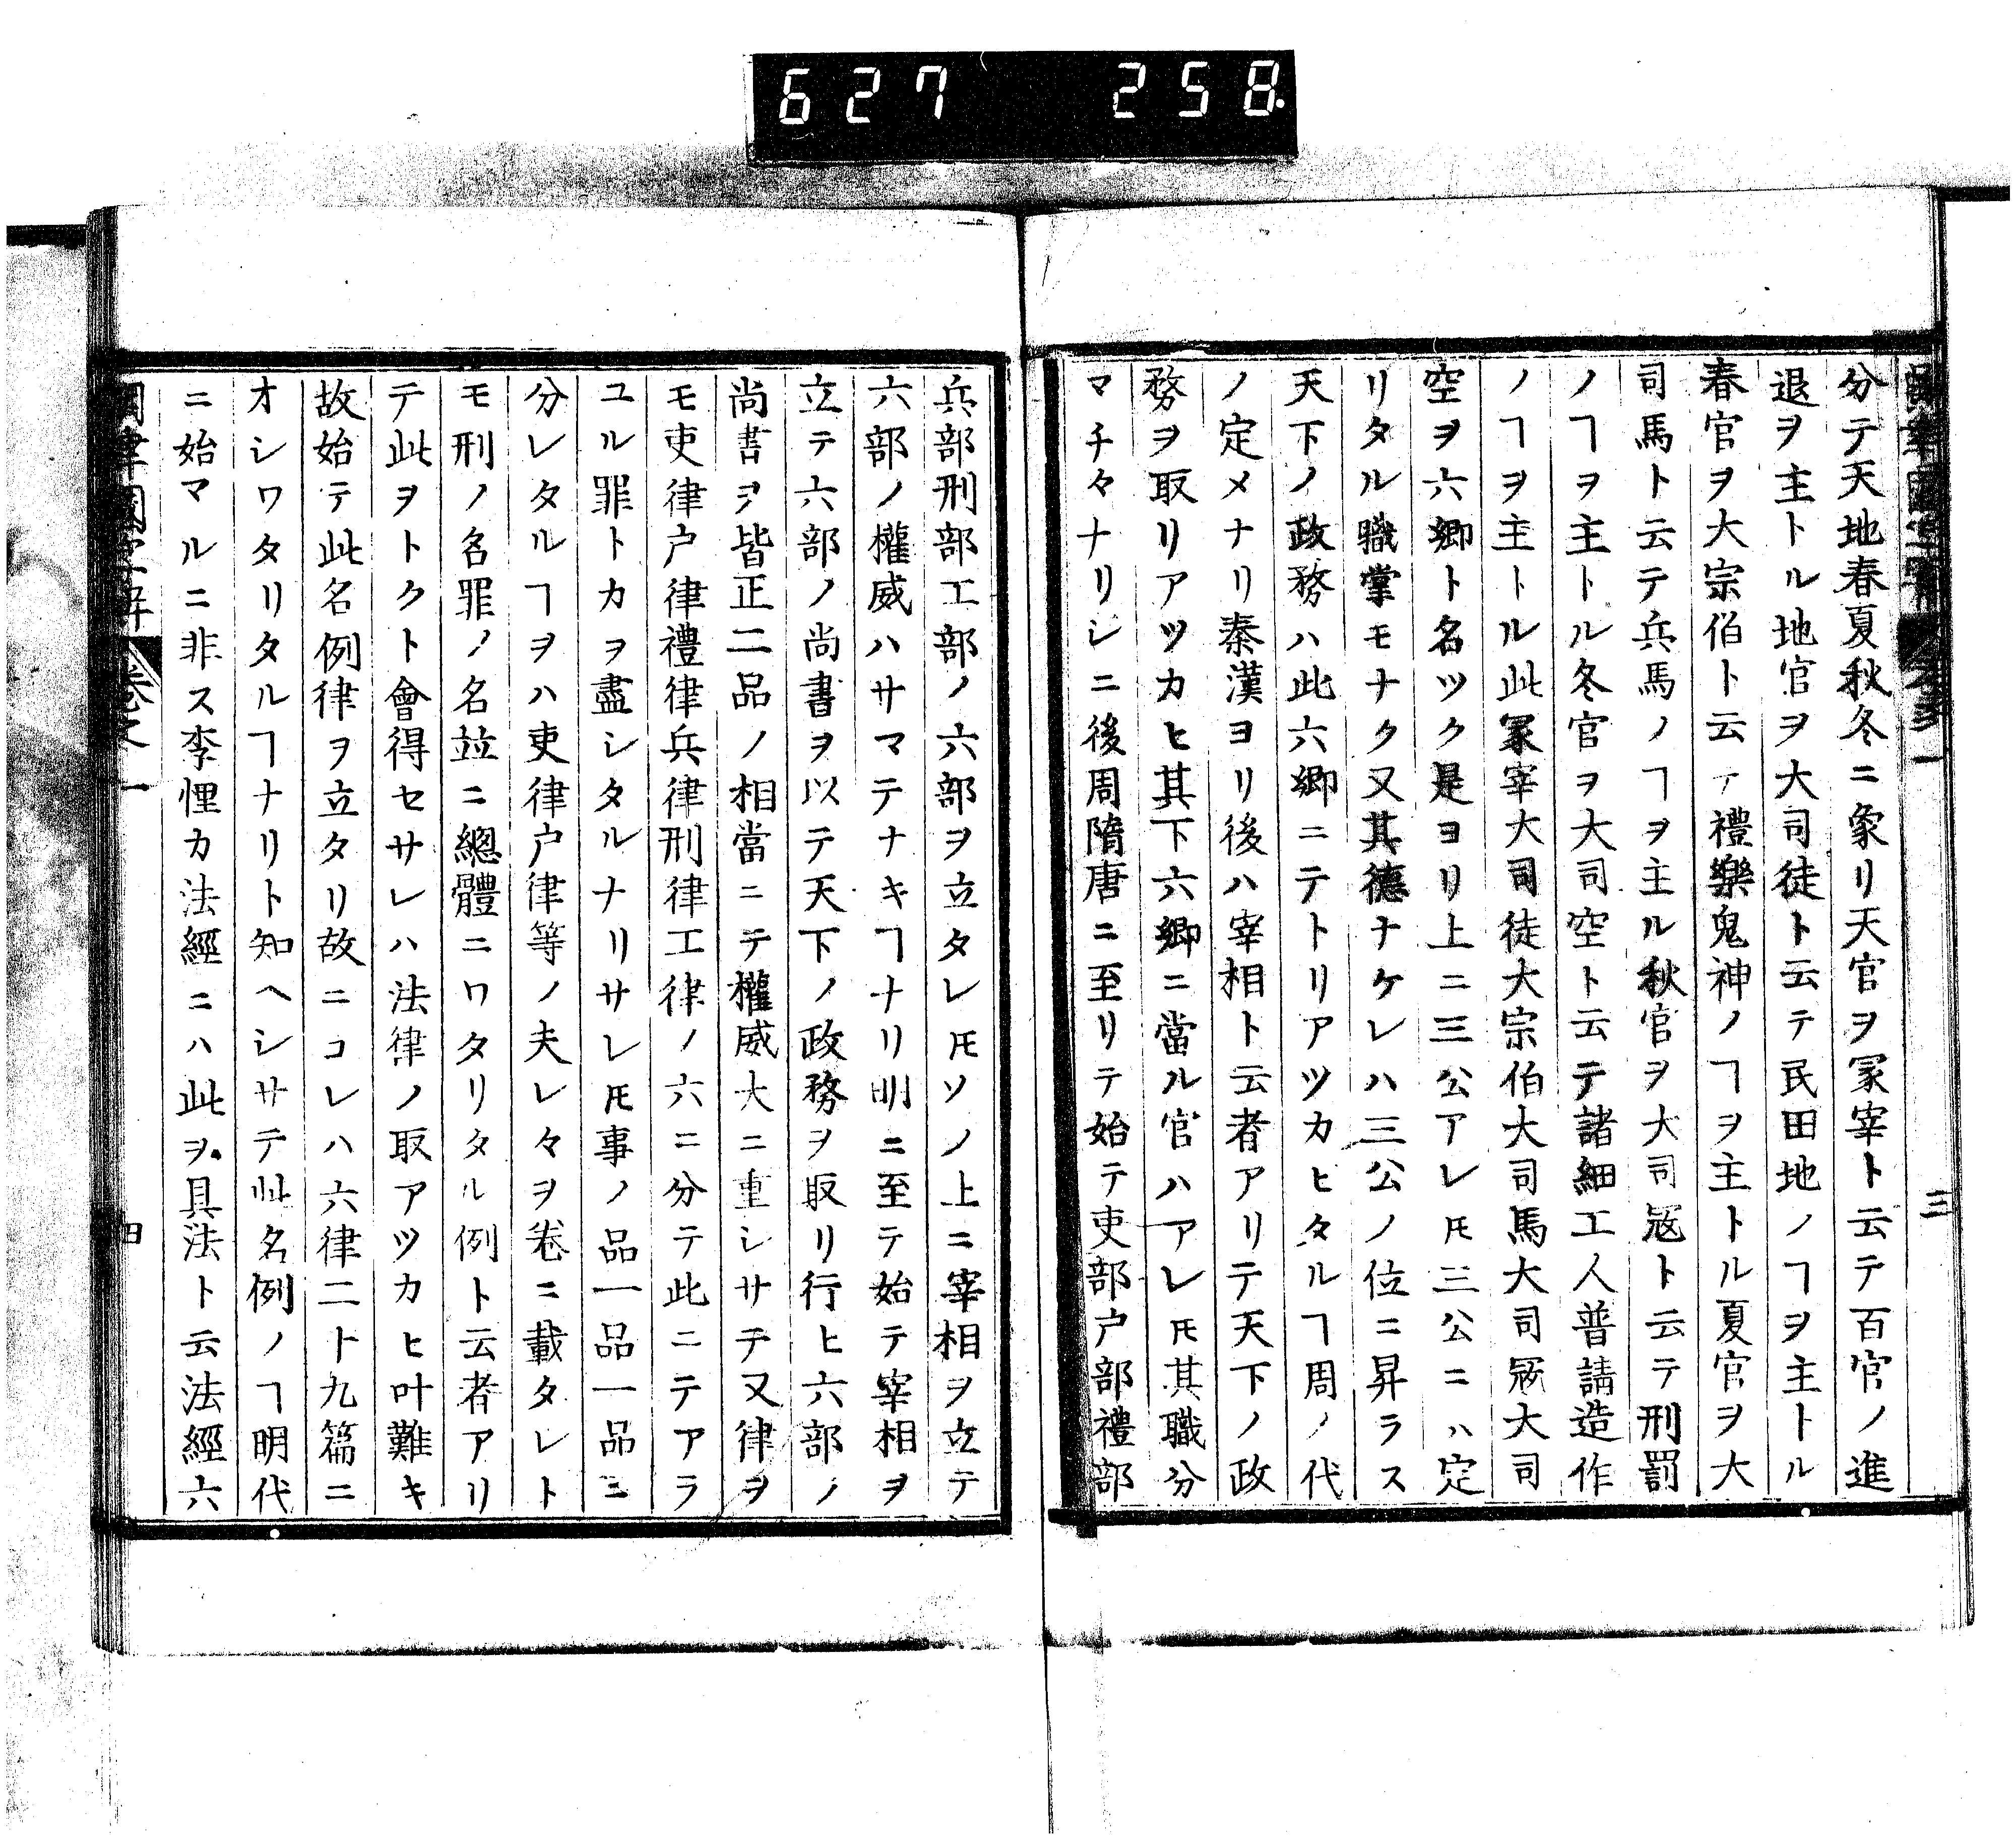 627 258
分テ天地春夏秋冬ニ象リ天官ヲ冢宰ト云テ百官ノ進
退ヲ主トル地官ヲ大司徒ト云テ民田地ノヿヲ主トル
春官ヲ大宗伯ト云テ禮樂鬼神ノヿヲ主トル夏官ヲ大
司馬ト云テ兵馬ノヿヲ主ル秋官ヲ大司冦ト云テ刑罰
ノヿヲ主トル冬官ヲ大司空ト云テ諸細工人普請造作
ノヿヲ主トル此冢宰大司徒大宗伯大司馬大司冦大司
空ヲ六卿ト名ツク是ヨリ上ニ三公アレ𪜈三公ニハ定
リタル職掌モナク又其德ナケレハ三公ノ位ニ昇ラス
天下ノ政務ハ此六卿ニテトリアツカヒタルヿ周ノ代
ノ定メナリ秦漢ヨリ後ハ宰相ト云者アリテ天下ノ政
務ヲ取リアツカヒ其下六卿ニ當ル官ハアレ𪜈其職分
マチ々ナリシニ後周隋唐ニ至リテ始テ吏部户部禮部
三
兵部刑部工部ノ六部ヲ立タレ𪜈ソノ上ニ宰相ヲ立テ
六部ノ權威ハサマテナキヿナリ明ニ至テ始テ宰相ヲ
立テ六部ノ尚書ヲ以テ天下ノ政務ヲ取リ行ヒ六部ノ
尚書ヲ皆正二品ノ相當ニテ權威大ニ重シサテ又律ヲ
モ吏律户律禮律兵律刑律工律ノ六ニ分テ此ニテアラ
ユル罪トカヲ盡シタルナリサレ𪜈事ノ品一品一品ニ
分レタルヿヲハ吏律户律等ノ夫レ々ヲ卷ニ載タレト
モ刑ノ名罪ノ名竝ニ總體ニワタリタル例ト云者アリ
テ此ヲトクト會得セサレハ法律ノ取アツカヒ叶難キ
故始テ此名例律ヲ立タリ故ニコレハ六律二ト九篇ニ
オシワタリタルヿナリト知ヘシサテ此名例ノヿ明代
ニ始マルニ非ス李悝カ法經ニハ此ヲ具法ト云法經六
卷之一
四